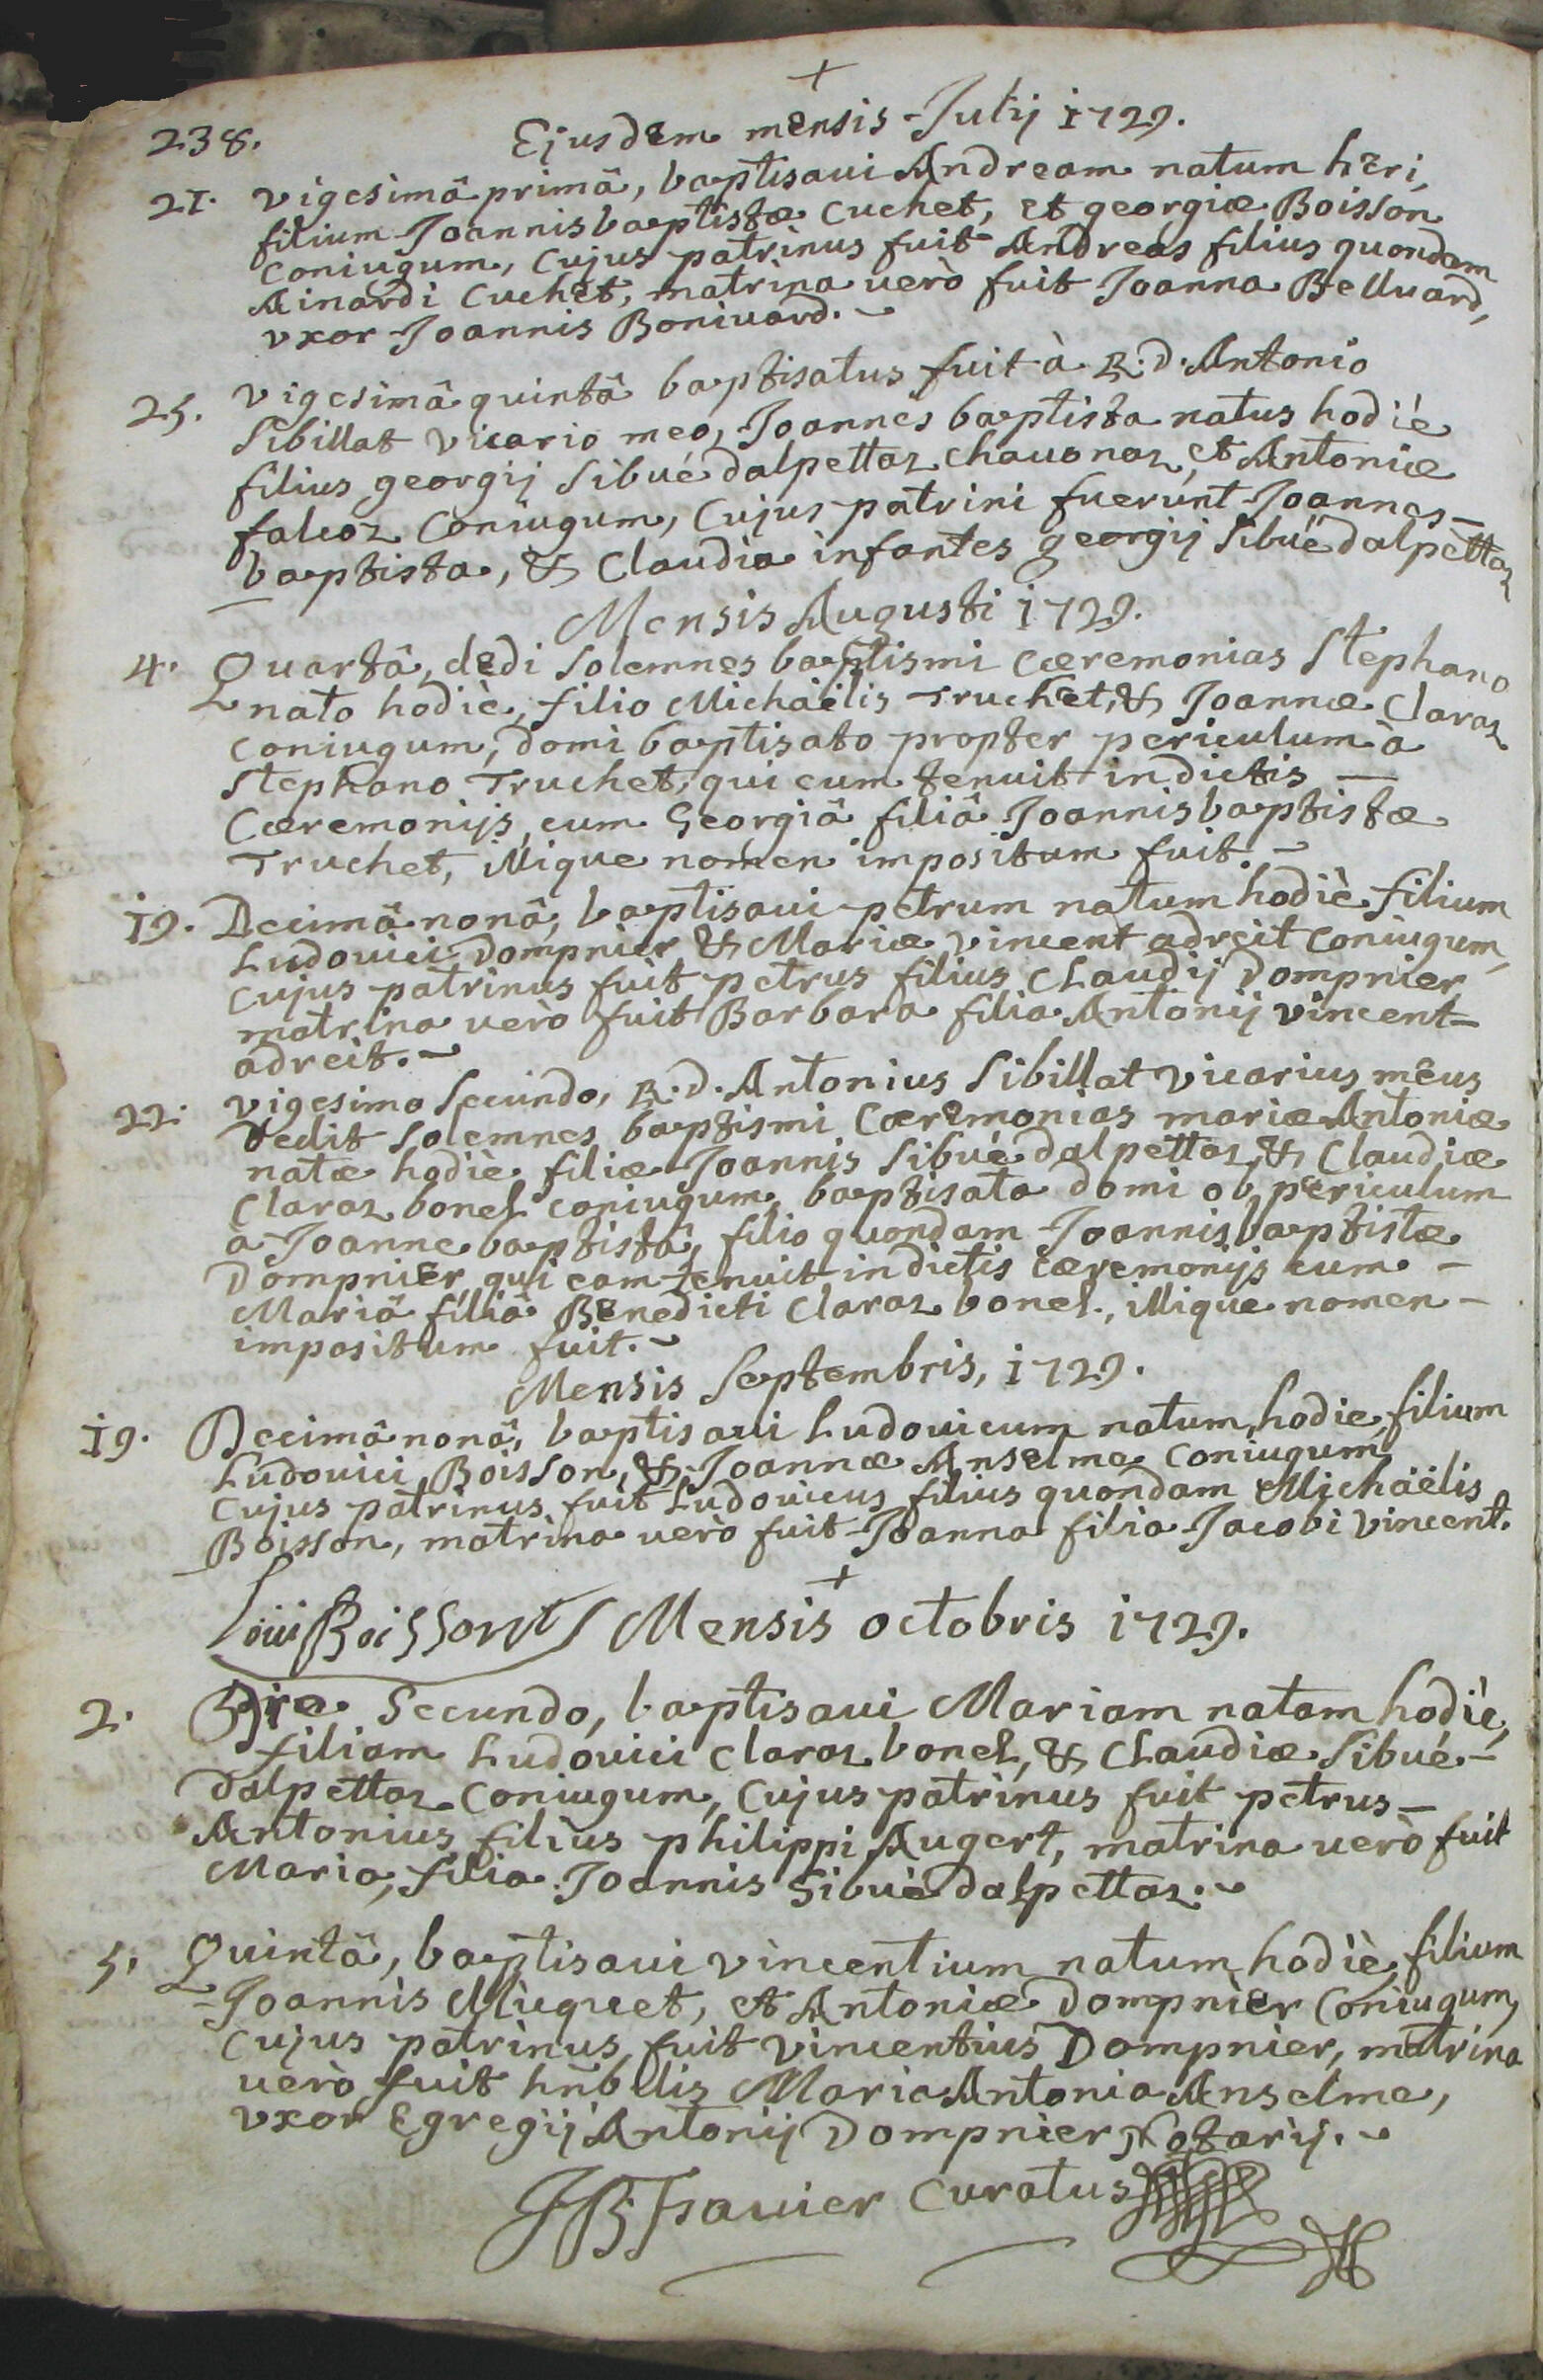 +
238. Ejusdem mensis Julij 1729.
21. vigesimâ primâ, baptisaui Andream natum heri,
filium Joannisbaptistæ Cuchet, et georgiæ Boisson
coniugum, cujus patrinus fuit Andreas filius quondam
Ainardi Cuchet, matrina uerò fuit Joanna Belluard,
vxor Joannis Boniuard.
25. vigesimâ quintâ baptisatus fuit à R.d. Antonio
Sibillat vicario meo, Joannes baptista natus hodiè
filius georgij Sibué dalpettaz chauonaz, et Antoniæ
falcoz coniugum, cujus patrini fuerunt Joannes-
baptista, & Claudia infantes georgij Sibué dalpettaz
Mensis Augusti 1729.
4. Quartâ, dedi solemnes baptismi cæremonias Stephano
nato hodiè, filio Michaëlis Truchet, & Joannæ Claraz
coniugum, domi baptisato propter periculum à
Stephano Truchet, qui eum tenuit in dictis —
Cæremonijs, cum Georgiâ filiâ Joannisbaptistæ
Truchet, illique nomen impositum fuit.
19. Decimâ nonâ, baptisaui petrum natum hodiè filium
Ludouici Dompnier & Mariæ vincent adreit coniugum,
cujus patrinus fuit petrus filius Claudij Dompnier
matrina uerò fuit Barbara filia Antonij vincent-
adreit.
22. vigesimo Secundo, R.d. Antonius Sibillat vicarius meus
dedit solemnes baptismi Cæremonias mariæ Antoniæ
natæ hodiè filiæ Joannis Sibué dalpettaz & Claudiæ
Claraz bonel coniugum, baptisata domi ob periculum
à Joanne baptistâ, filio quondam Joannisbaptistæ
Dompnier, qui eam tenuit in dictis cæremonijs cum -
Mariâ filiâ Benedicti Claraz bonel, illique nomen -
impositum fuit.
Mensis Septembris, 1729.
19. Decimâ nonâ, baptisaui Ludouicum natum hodie, filium
Ludouici Boisson, & Joannæ Anselme coniugum
cujus patrinus fuit Ludouicus filius quondam Michaëlis
Boisson, matrina uerò fuit Joanna filia Jacobi vincent.
+
Loüi Boisson Mensis octobris 1729.
2. Die Secundo, baptisaui Mariam natam hodiè,
filiam Ludouici Claraz bonel, & Claudiæ Sibué-
dalpettaz coniugum, cujus patrinus fuit petrus-
Antonius filius philippi Augert, matrina uerò fuit
Maria, filia Joannis Sibué dalpettaz.
5. Quintâ, baptisaui vincentium natum hodiè, filium
Joannis Miuguet, et Antoniæ Dompnier coniugum,
cujus patrinus fuit vincentius Dompnier, matrina
uerò fuit hñbilis Maria Antonia Anselme,
vxor Egregij Antonij Dompnier Notarij.
JB curatus